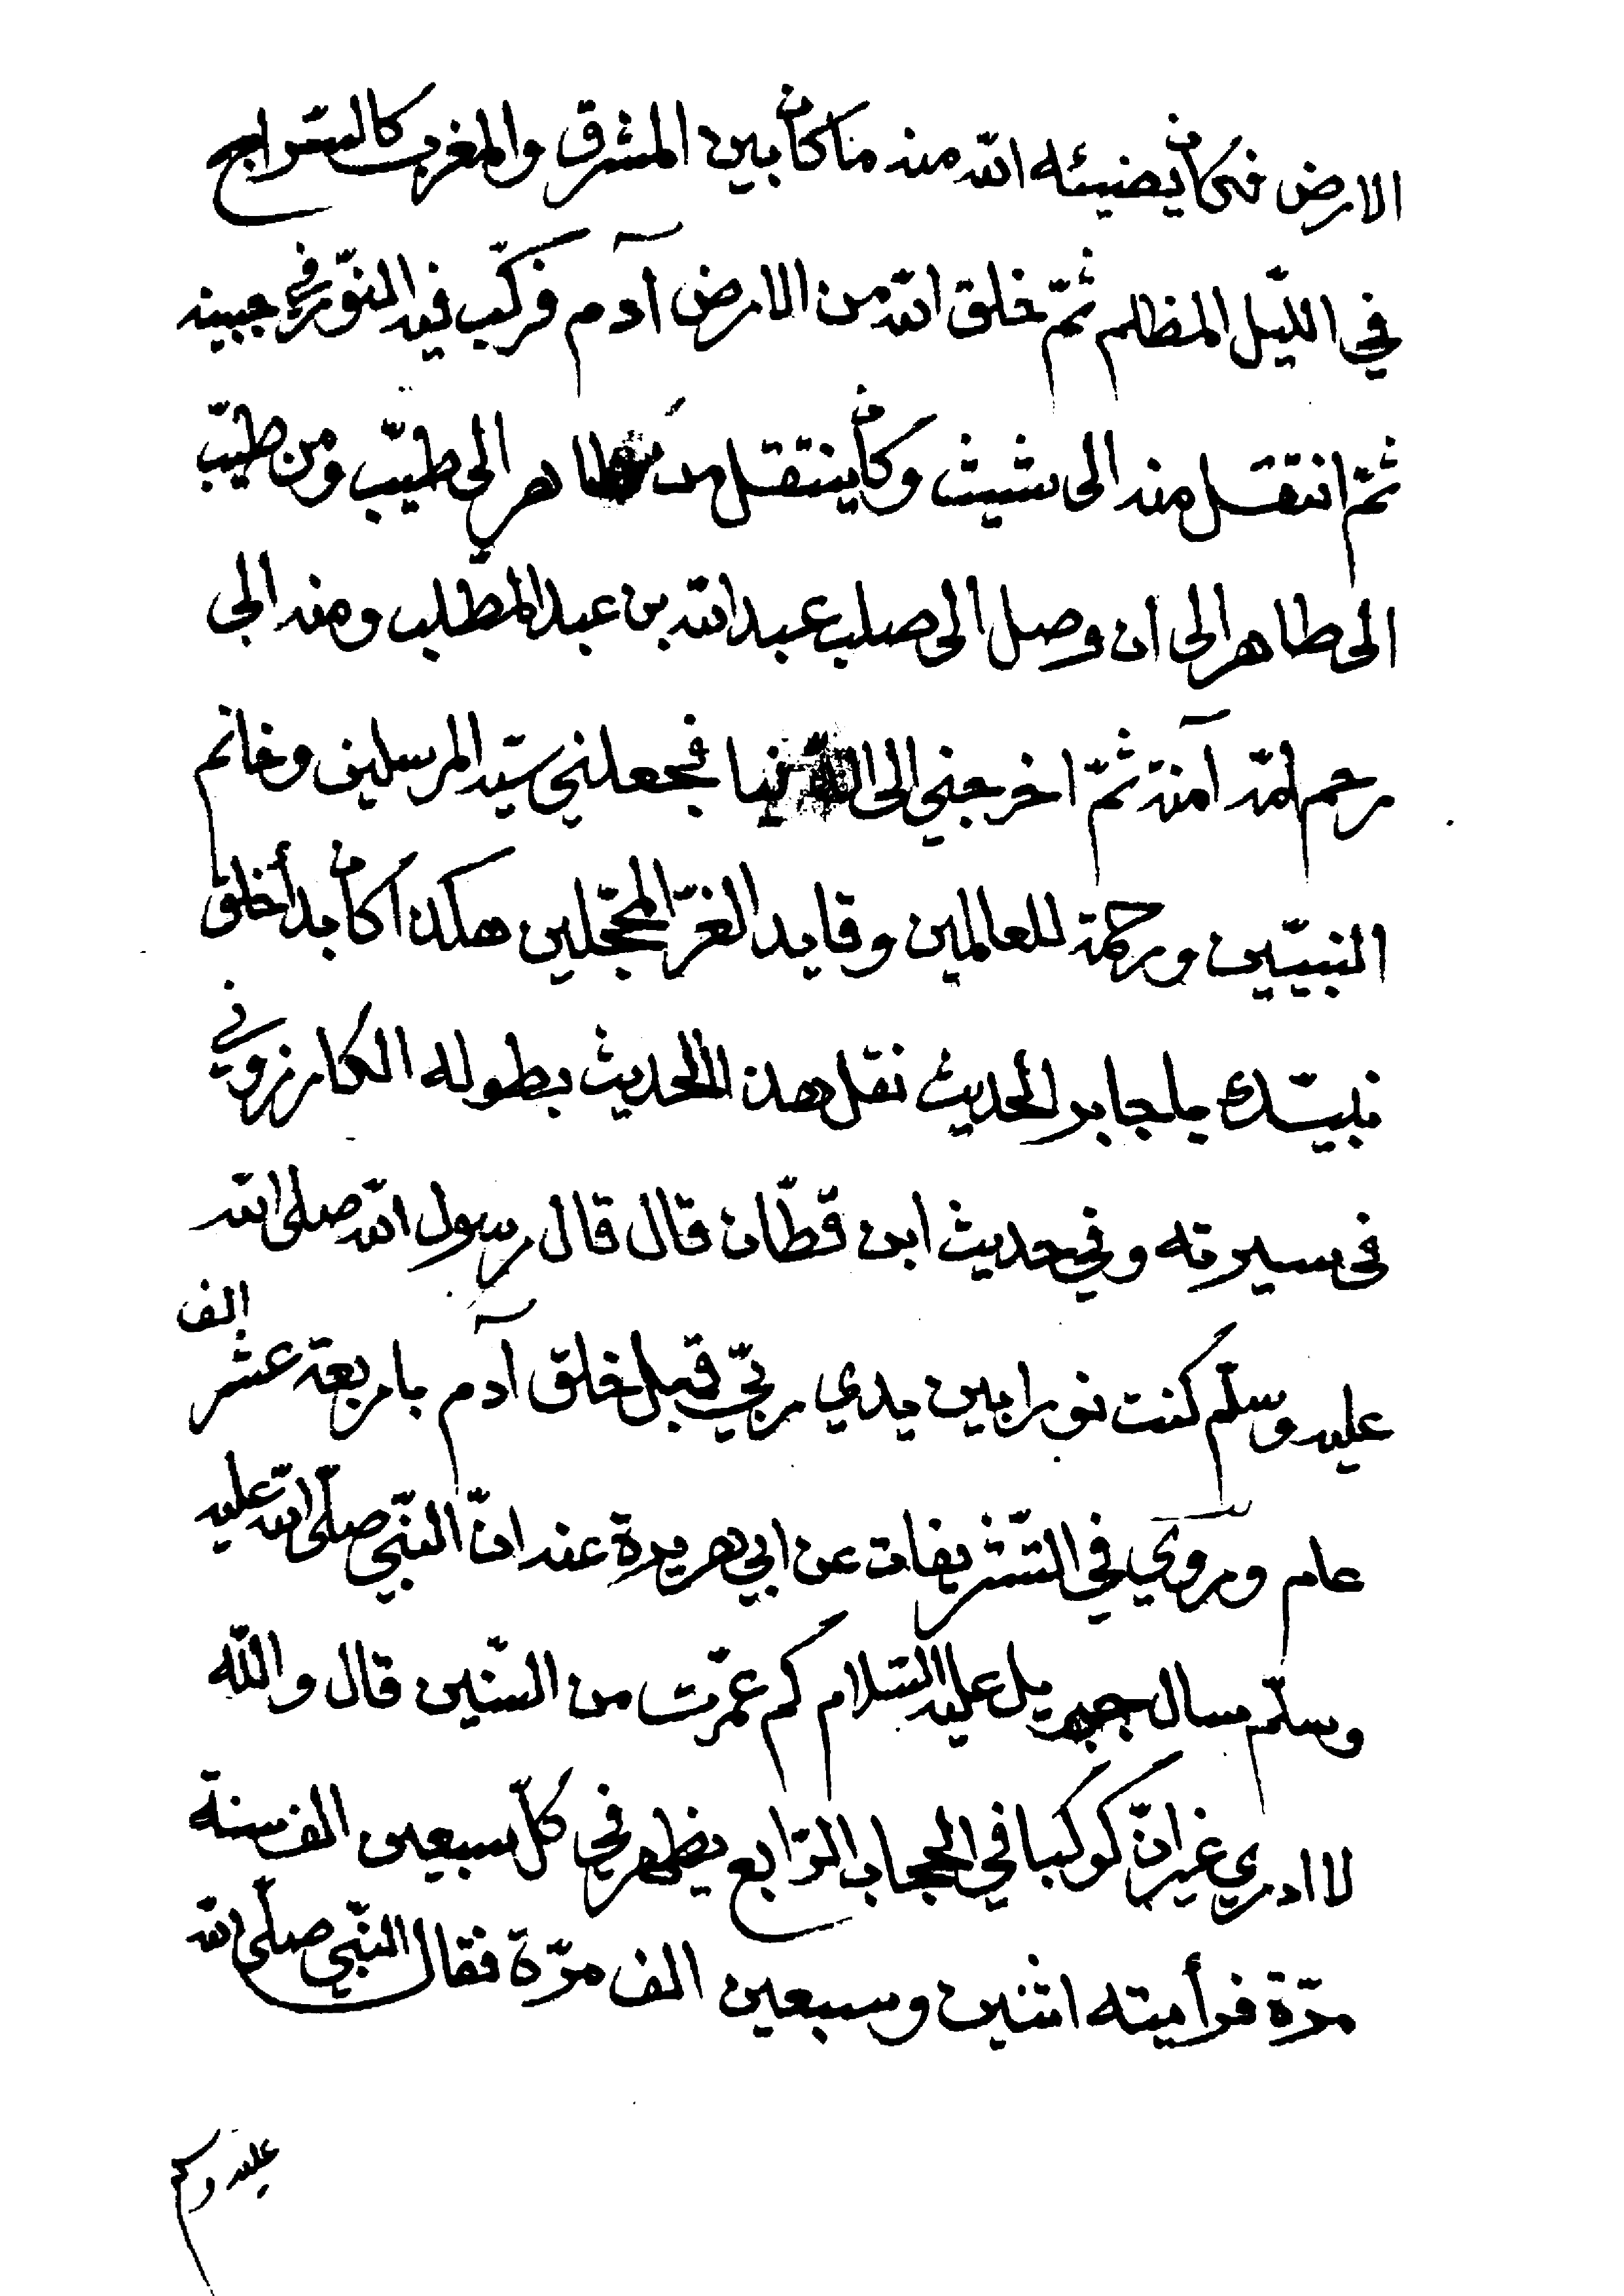 الارض فكان يضيئه الله منه ما كان بين المشرق والمغرب كالسّراج
في اللّيل المظلم ثمّ خلق الله من الارض آدم فركّب فيه النّور في جبينه
ثمّ انتقل منه الى شيث وكان ينتقل من طاهر الى طيّب ومن طيّب
الى طاهر الى ان وصل الى صلب عبد الله بن عبد المطّلب ومنه الى
رحم امّه آمنة ثمّ اخرجني الى الدّنيا فجعلني سيّد المرسلين وخاتم
النبيّين ورحمة للعالمين وقايد الغرّ المحجّلين هكذا كان بدأ خلق
نبيّك يا جابر الحديث نقل هذا الحديث بطوله الكازروني
فى سيرته وفي حديث ابن قطّان قال قال رسول الله صلى الله
عليه وسلّم كنت نورا بين يدي ربّي قبل خلق آدم باربعة عشر الف
عام وروي في التّشريفات عن ابي هريرة عنه انّ النبّي صلّى الله عليه
وسلّم سال جبريل عليه السّلام كم عمّرت من السّنين قال والله
لا ادري غير انّ كوكبا في الحجاب الرّابع يظهر في كلّ سبعين الف سنة
مرّة فرأيته اثنين وسبعين الف مرّة فقال النبّي صلّى الله
عليه وسلم